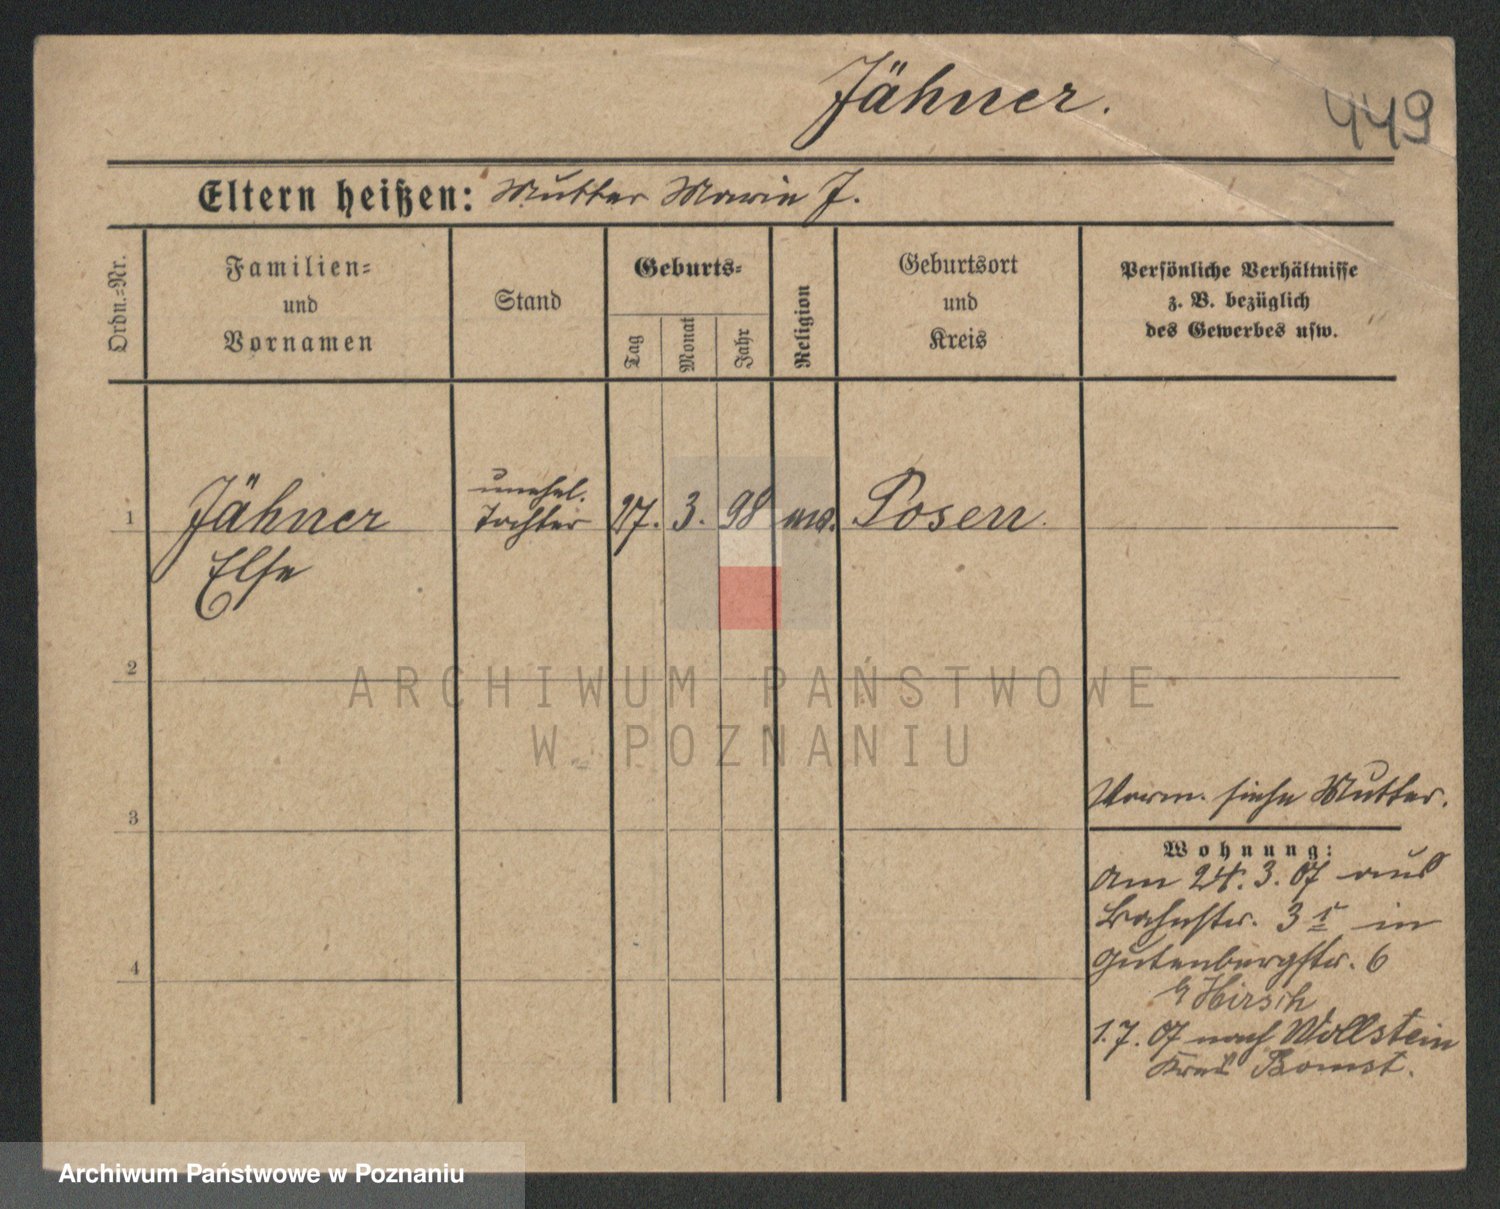 Jähner.
449
Eltern heißen: Mutter Marie J.
Ordn.=Nr.
Familien=
und
Vornamen
Stand
Geburts=
Tag
Monat
Jahr
Religion
Geburtsort
und
Kreis
Persönliche Verhältnisse
z. B. bezüglich
des Gewerbes usw.
1
Jähner
Else
unehel.
Tochter
27. 3. 98
Posen
2
3
4
siehe Mutter.
Wohnung:
Am 24. 3. 07 aus
Bahnstr. 3 in
Gutenbergstr. 6
b/ Hirsch
1. 7. 07 nach Wollstein
Kreis Bomst.
ARCHIWUM PAŃSTWOWE
W POZNANIU
Archiwum Państwowe w Poznaniu